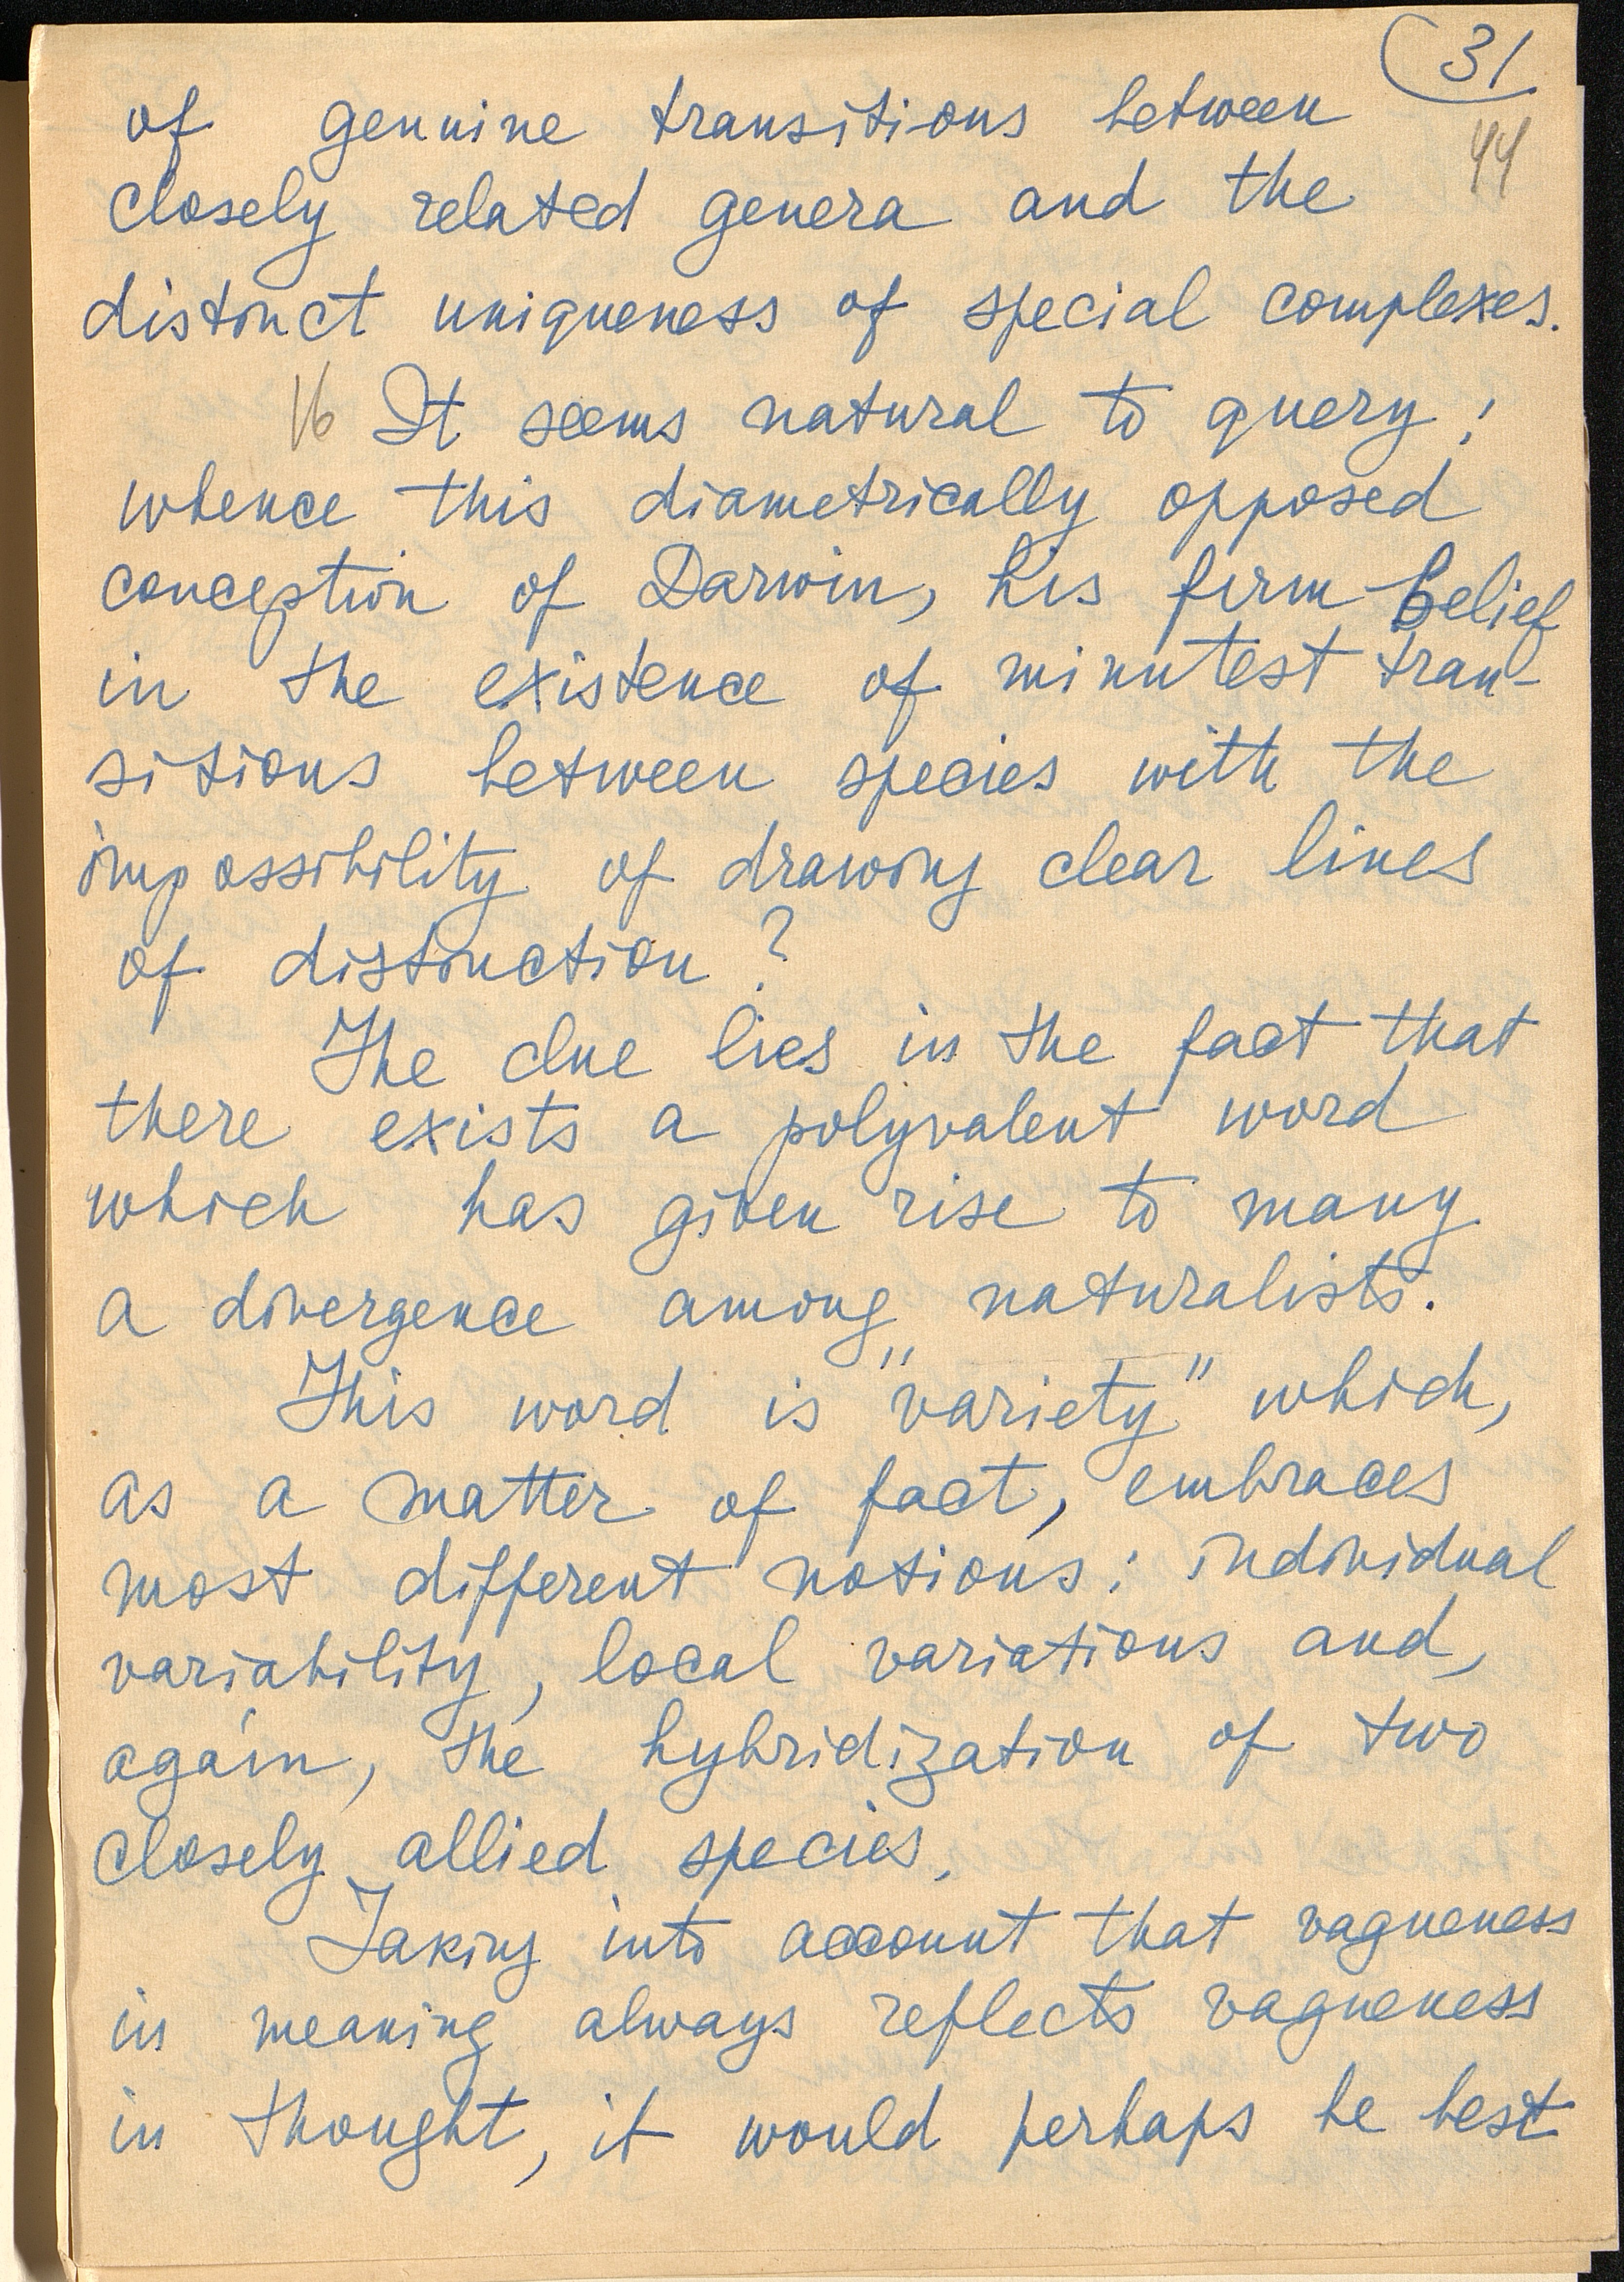 31
44
of genuine transitions between
closely related genera and the
distinct uniqueness of special complexes.
16 It seems natural to query:
whence this diametrically opposed
conception of Darwin, his firm belief
in the existence of minutest tran-
sitions between species with the
impossibility of drawing clear lines
of distinction?
The clue lies in the fact that
there exists a polyvalent word
which has given rise to many
a divergence among naturalists.
This word is "variety" which,
as a matter of fact, embraces
most different notions: individual
variability, local variations and,
again, the hybridization of two
closely allied species.
Taking into account that vagueness
in meaning always reflects vagueness
in thought, it would perhaps be best